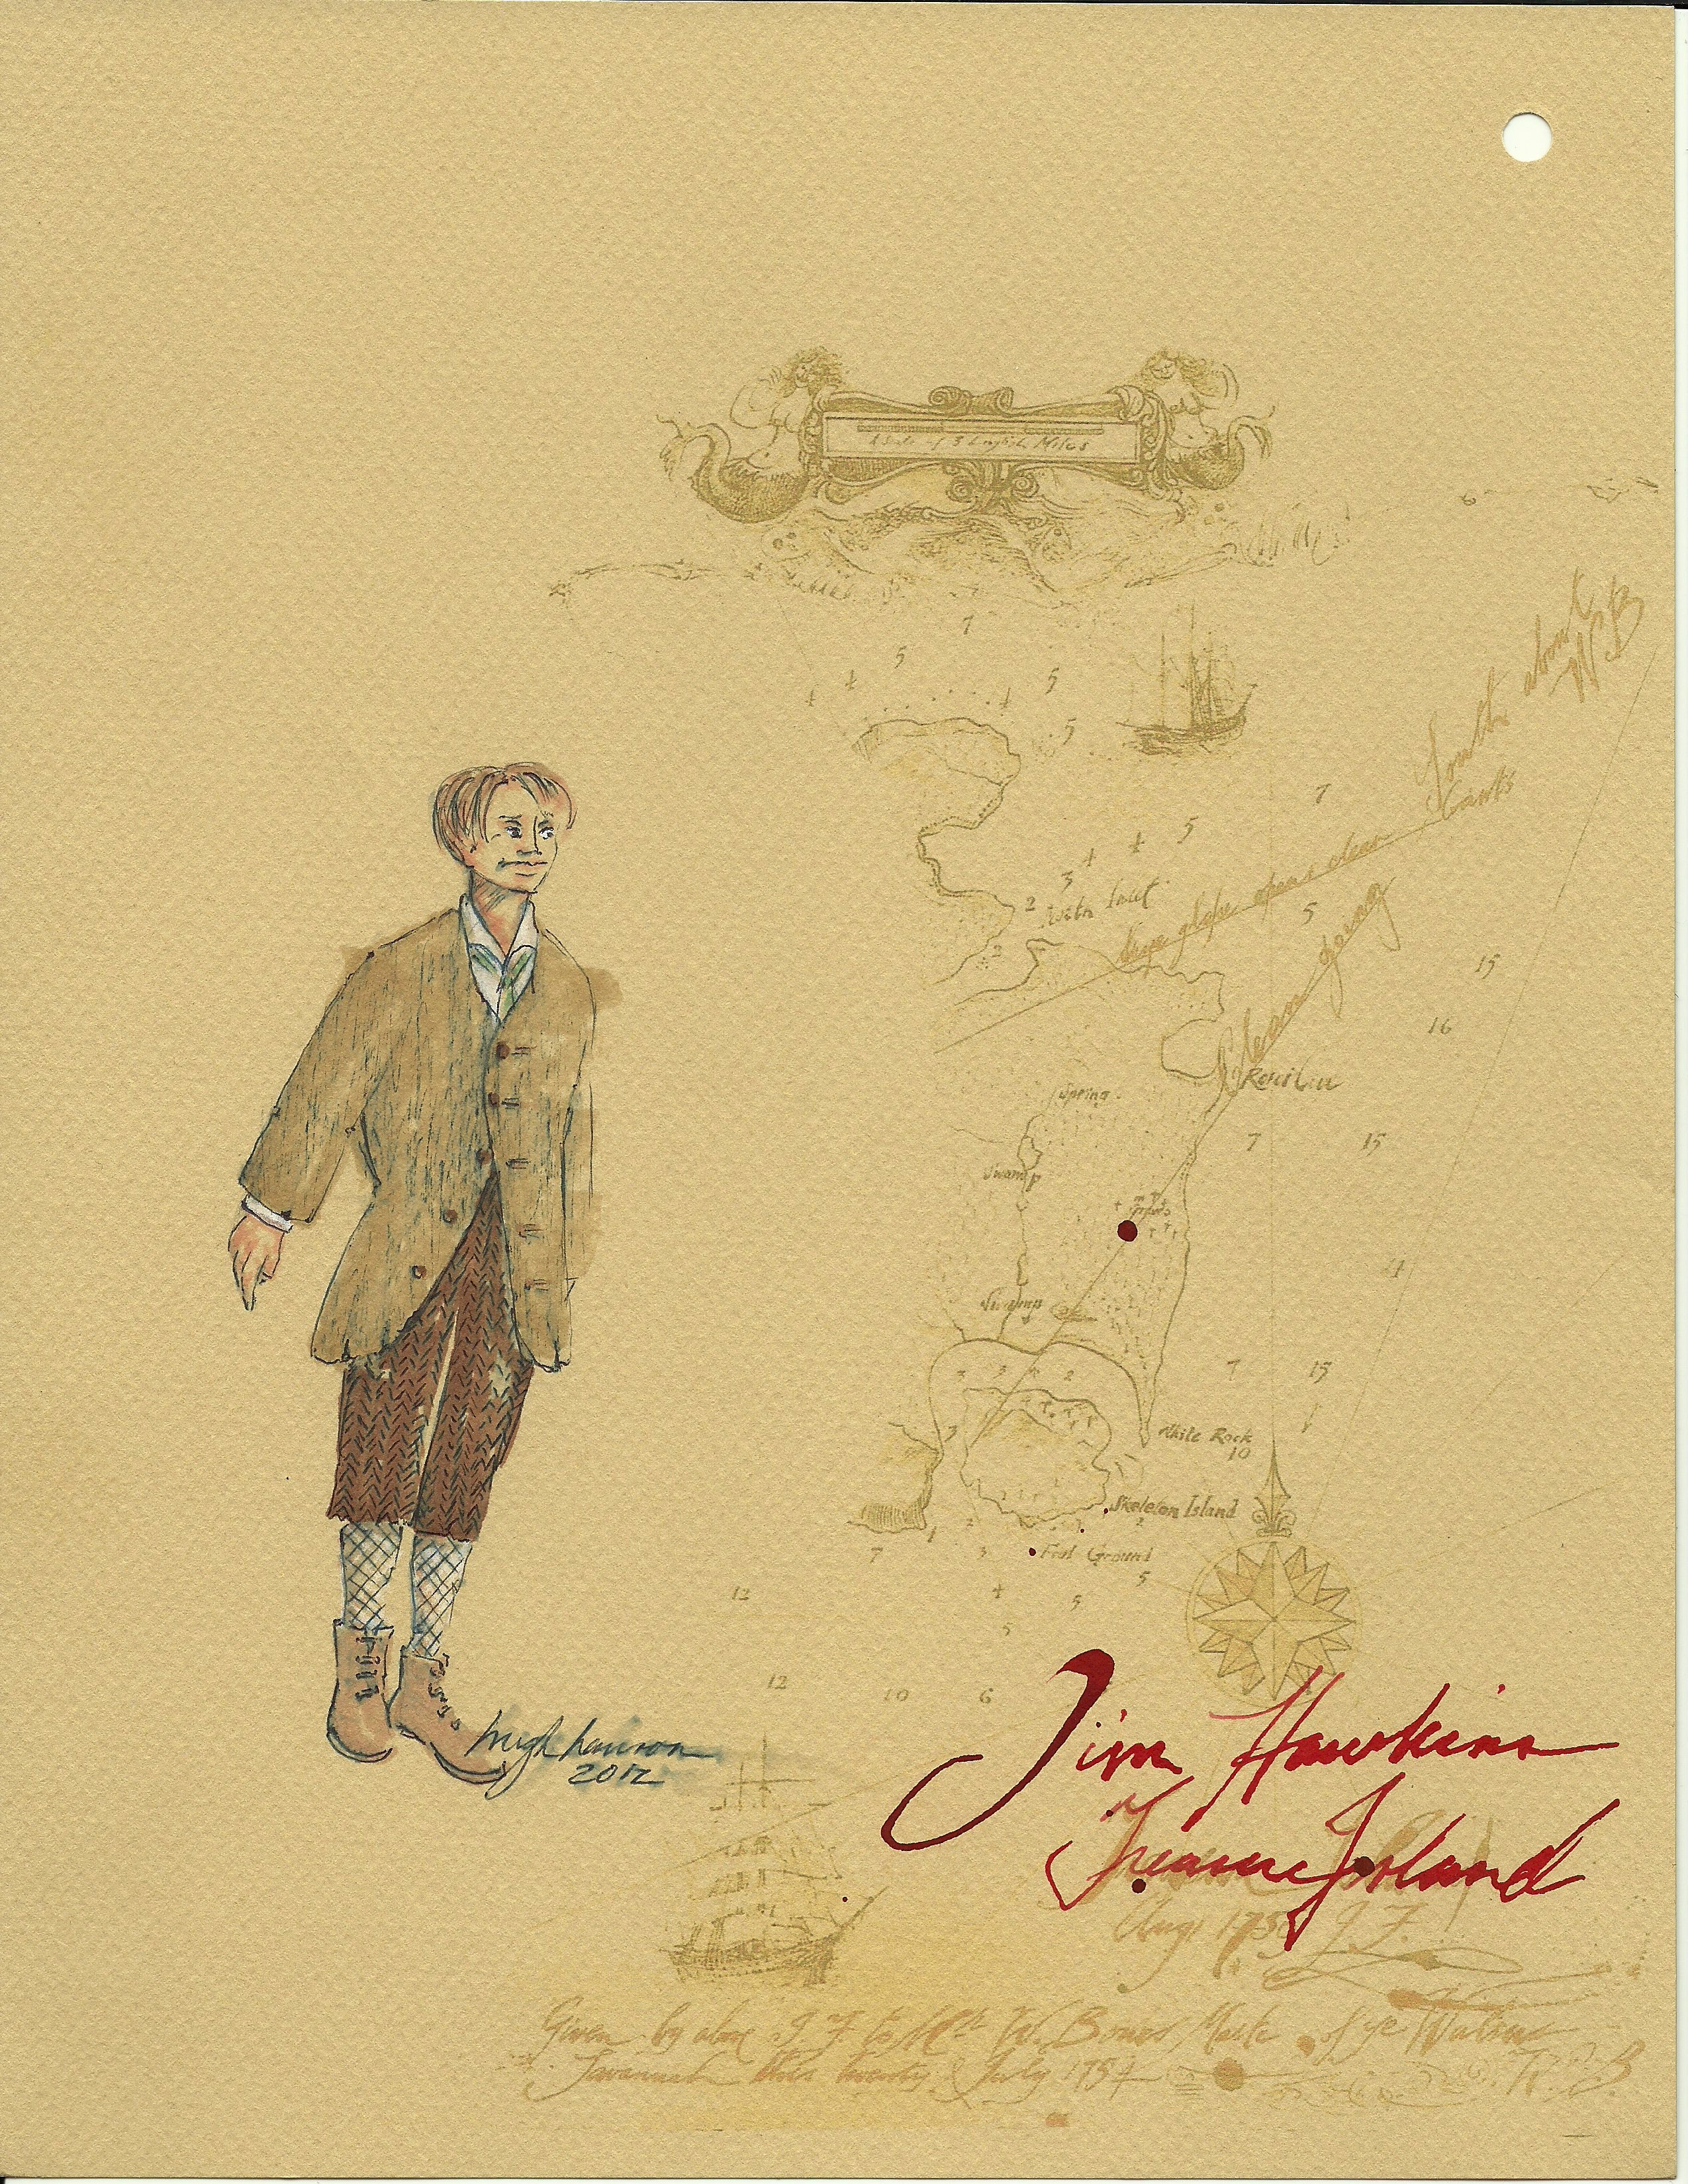 A Scale of 3 English Miles
7
5
4
4
5
4
5
7
5
4
4
3
2
2
5
15
16
Spring
Swamp
7
15
Graves
4
Swamp
3
3
2
7
15
3
White Rock
10
Skeleton Island
1
7
3
Foul Ground
12
4
5
5
5
12
10
6
hugh hanson
2012
Jim Hawkins
Treasure Island
Aug 1750 J. F.
Given by above J. F. to Mr W. Bones Mate of ye Walrus
Savannah this twenty July 1754 W. B.